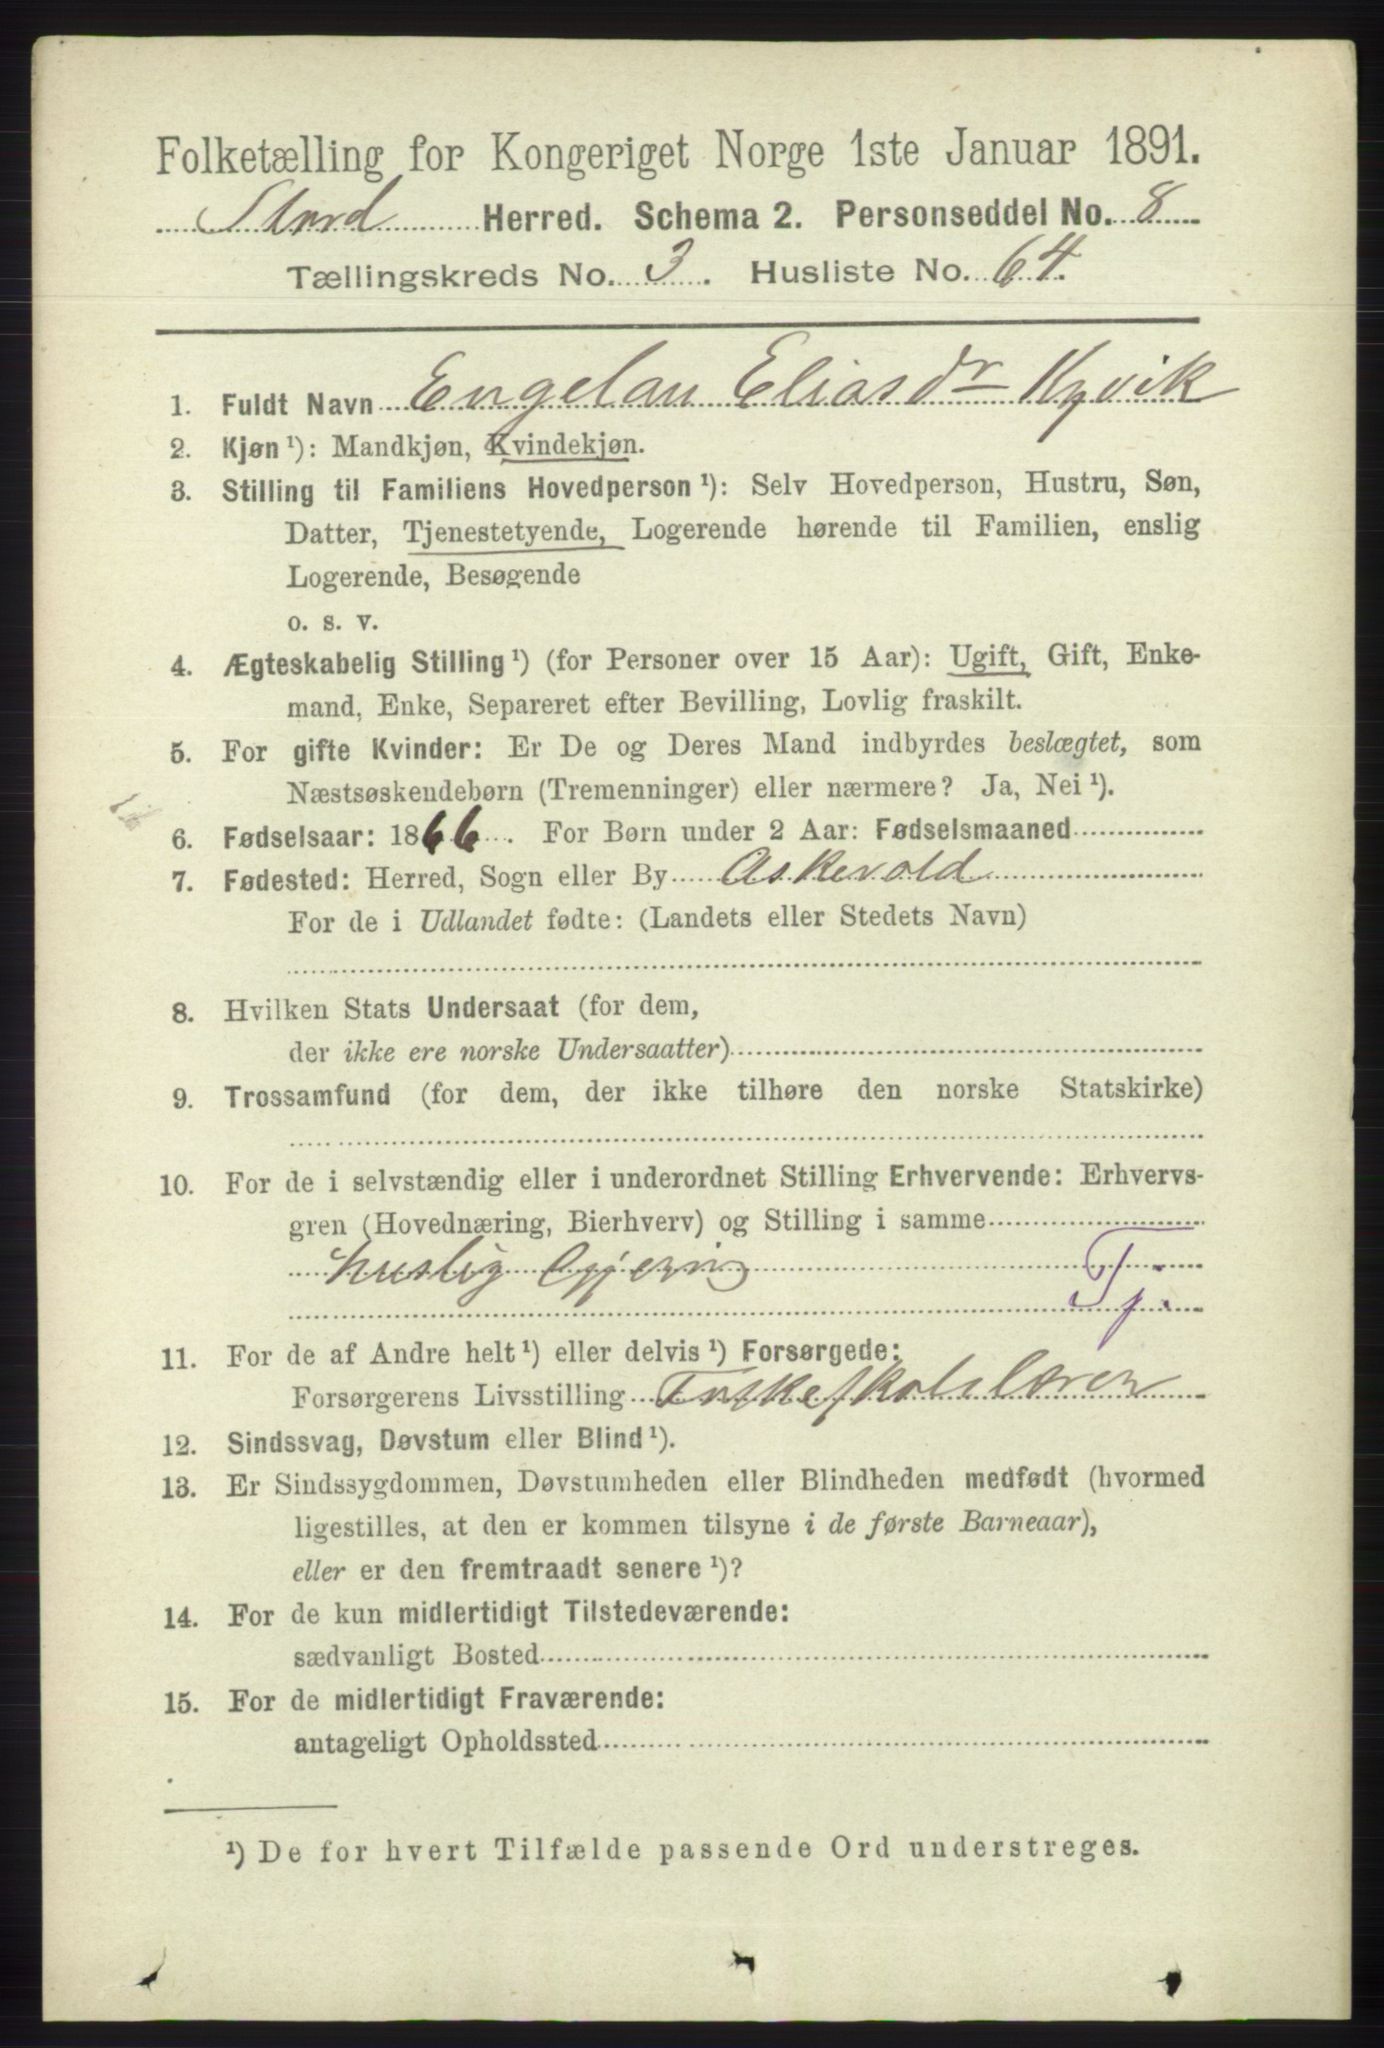 Folketælling for Kongeriget Norge 1ste Januar 1891.
Stord Herred. Schema 2. Personseddel No. 8
Tællingskreds No. 3. Husliste No. 64.
1. Fuldt Navn Engelau Eliasdr Kyvik
2. Kjøn ¹): Mandkjøn, Kvindekjøn.
3. Stilling til Familiens Hovedperson ¹): Selv Hovedperson, Hustru, Søn,
Datter, Tjenestetyende, Logerende hørende til Familien, enslig
Logerende, Besøgende
o. s. v.
4. Ægteskabelig Stilling ¹) (for Personer over 15 Aar): Ugift, Gift, Enke-
mand, Enke, Separeret efter Bevilling, Lovlig fraskilt.
5. For gifte Kvinder: Er De og Deres Mand indbyrdes beslægtet, som
Næstsøskendebørn (Tremenninger) eller nærmere? Ja, Nei ¹).
6. Fødselsaar: 1866. For Børn under 2 Aar: Fødselsmaaned
7. Fødested: Herred, Sogn eller By Askevold
For de i Udlandet fødte: (Landets eller Stedets Navn)
8. Hvilken Stats Undersaat (for dem,
der ikke ere norske Undersaatter)
9. Trossamfund (for dem, der ikke tilhøre den norske Statskirke)
10. For de i selvstændig eller i underordnet Stilling Erhvervende: Erhvervs-
gren (Hovednæring, Bierhverv) og Stilling i samme
huslig Gjerning
Tj.
11. For de af Andre helt ¹) eller delvis ¹) Forsørgede:
Forsørgerens Livsstilling
12. Sindssvag, Døvstum eller Blind ¹).
13. Er Sindssygdommen, Døvstumheden eller Blindheden medfødt (hvormed
ligestilles, at den er kommen tilsyne i de første Barneaar),
eller er den fremtraadt senere ¹)?
14. For de kun midlertidigt Tilstedeværende:
sædvanligt Bosted
15. For de midlertidigt Fraværende:
antageligt Opholdssted
¹) De for hvert Tilfælde passende Ord understreges.